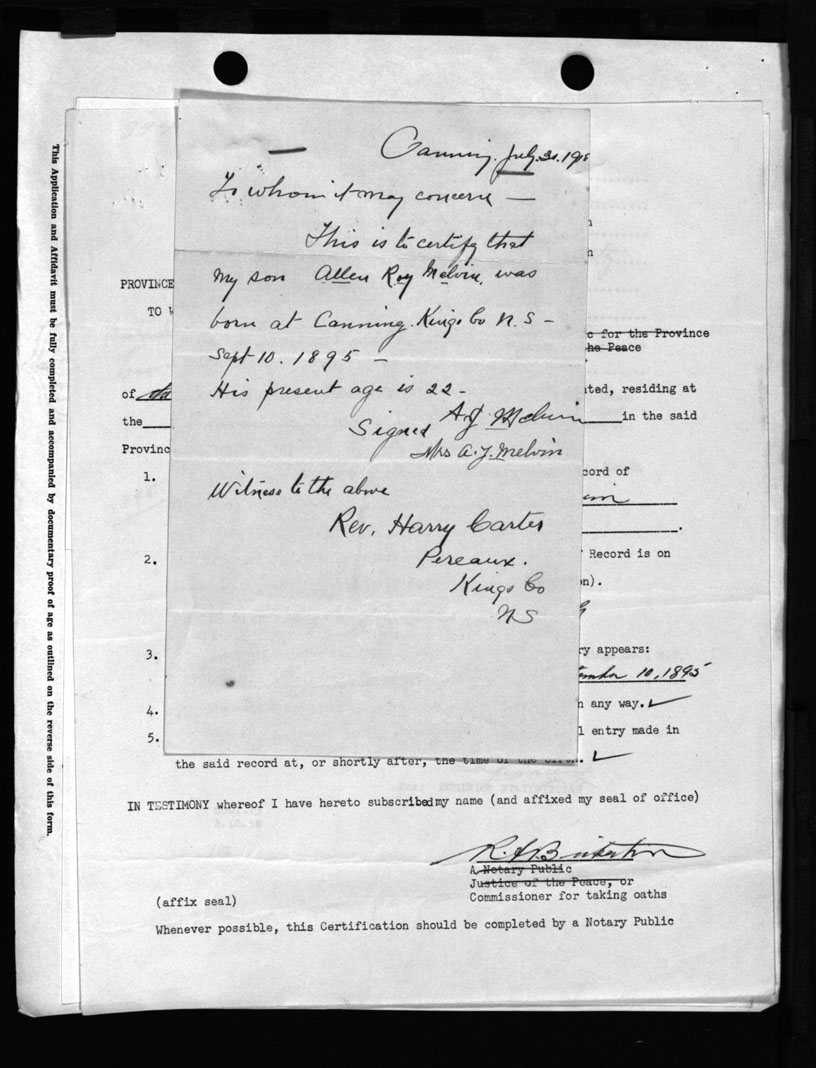 This Application and Affidavit must be fully completed and accompanied by documentary proof of age as outlined on the reverse side of this form.
Canning, July. 30. 191
To whom it may concern —
This is to certify that
my son Allen Roy Melvin, was
born at Canning. Kings Co N. S —
Sept 10. 1895 —
His present age is 22 -
Signed A J Melvin
Mrs A. J. Melvin
Witness to the above
Rev. Harry Carter
Pereaux.
Kings Co
NS
PROVINCE
TO
c for the Province
he Peace
of
ted, residing at
the in the said
Provinc
1. cord of
2. Record is on
n).
3. ry appears:
10, 1895
4. n any way.
5. l entry made in
the said record at, or shortly after, the time of the
IN TESTIMONY whereof I have hereto subscribed my name (and affixed my seal of office)
A Notary Public
Justice of the Peace, or
(affix seal) Commissioner for taking oaths
Whenever possible, this Certification should be completed by a Notary Public